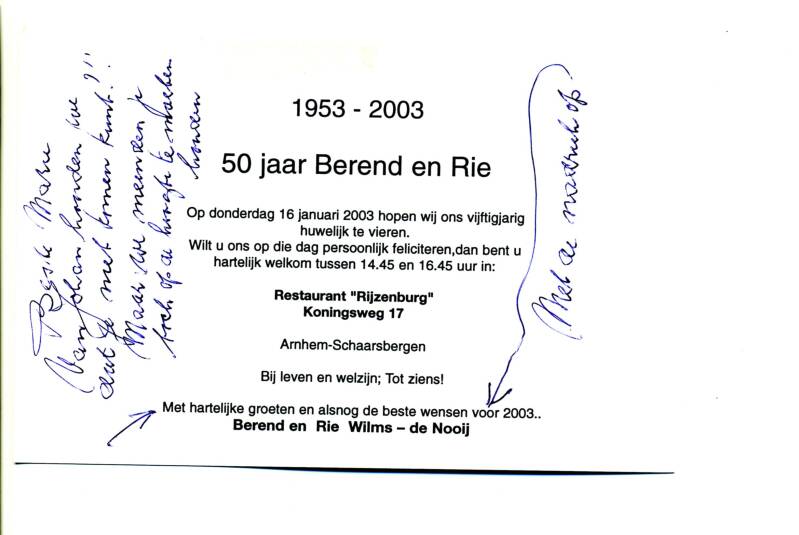 1953 - 2003
50 jaar Berend en Rie
Op donderdag 16 januari 2003 hopen wij ons vijftigjarig
huwelijk te vieren.
Wilt u ons op die dag persoonlijk feliciteren,dan bent u
hartelijk welkom tussen 14.45 en 16.45 uur in:
Restaurant "Rijzenburg"
Koningsweg 17
Arnhem-Schaarsbergen
Bij leven en welzijn; Tot ziens!
Met hartelijke groeten en alsnog de beste wensen voor 2003..
Berend en Rie Wilms – de Nooij
Beste
Van Johan hoorden we
dat je niet komen kunt.!!
Maar we meenden je
toch op de hoogte te moeten
houden
Met de nadruk op!